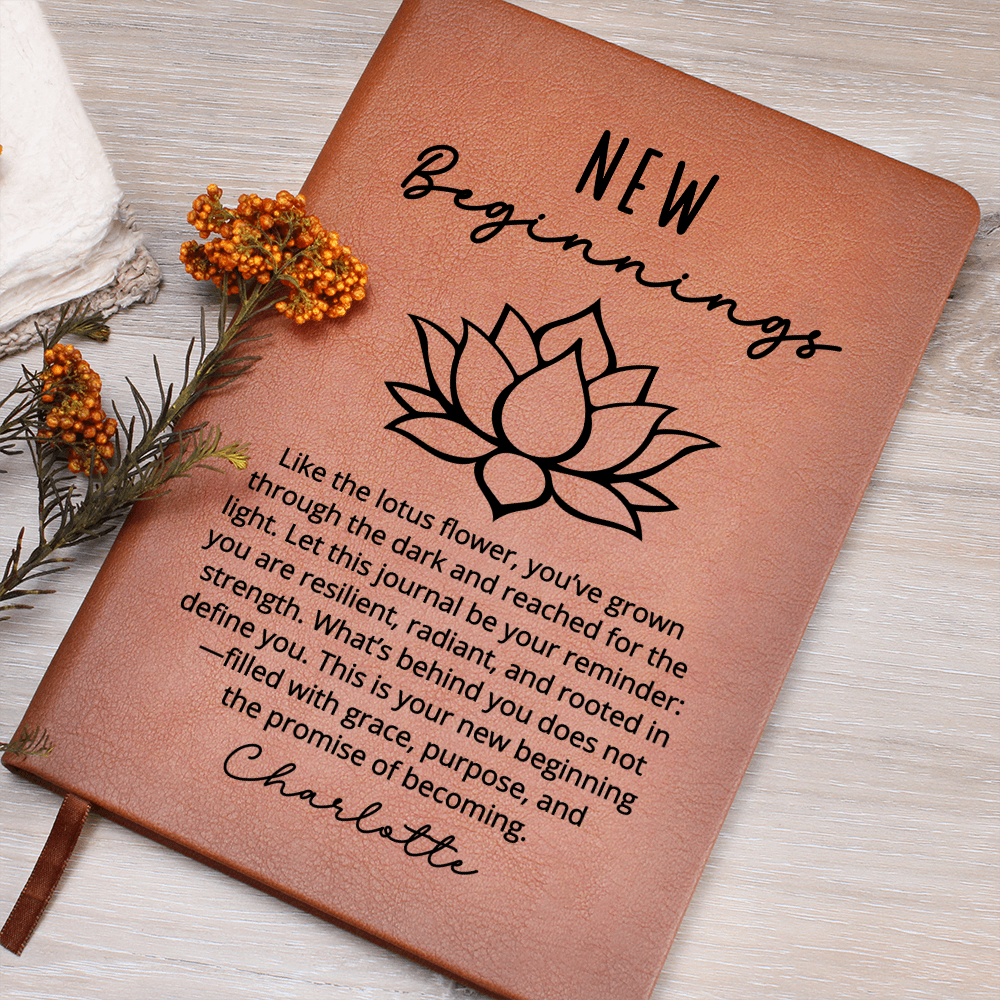 NEW
Beginnings
Like the lotus flower, you've grown
through the dark and reached for the
light. Let this journal be your reminder:
you are resilient, radiant, and rooted in
strength. What's behind you does not
define you. This is your new beginning
—filled with grace, purpose, and
the promise of becoming.
Charlotte